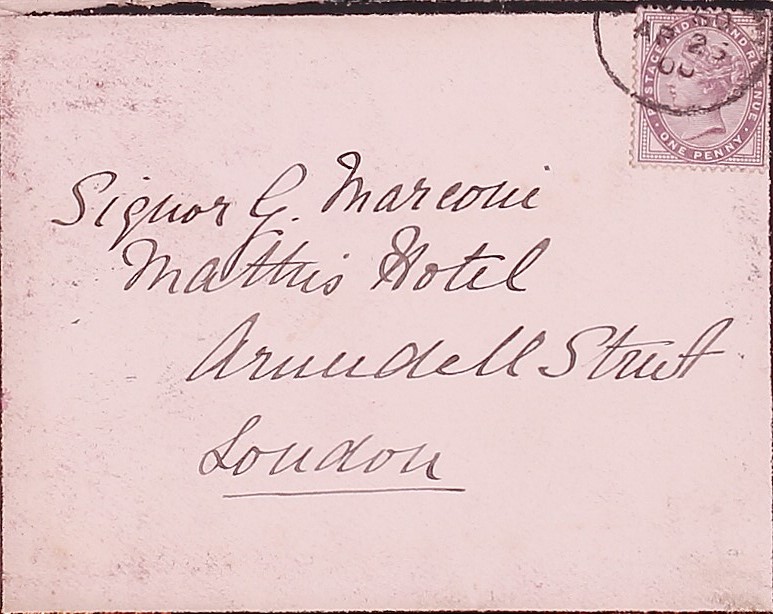 AP 23
00
POSTAGE AND INLAND REVENUE
ONE PENNY
Signor G. Marconi
Mathis Hotel
Arundell Street
London